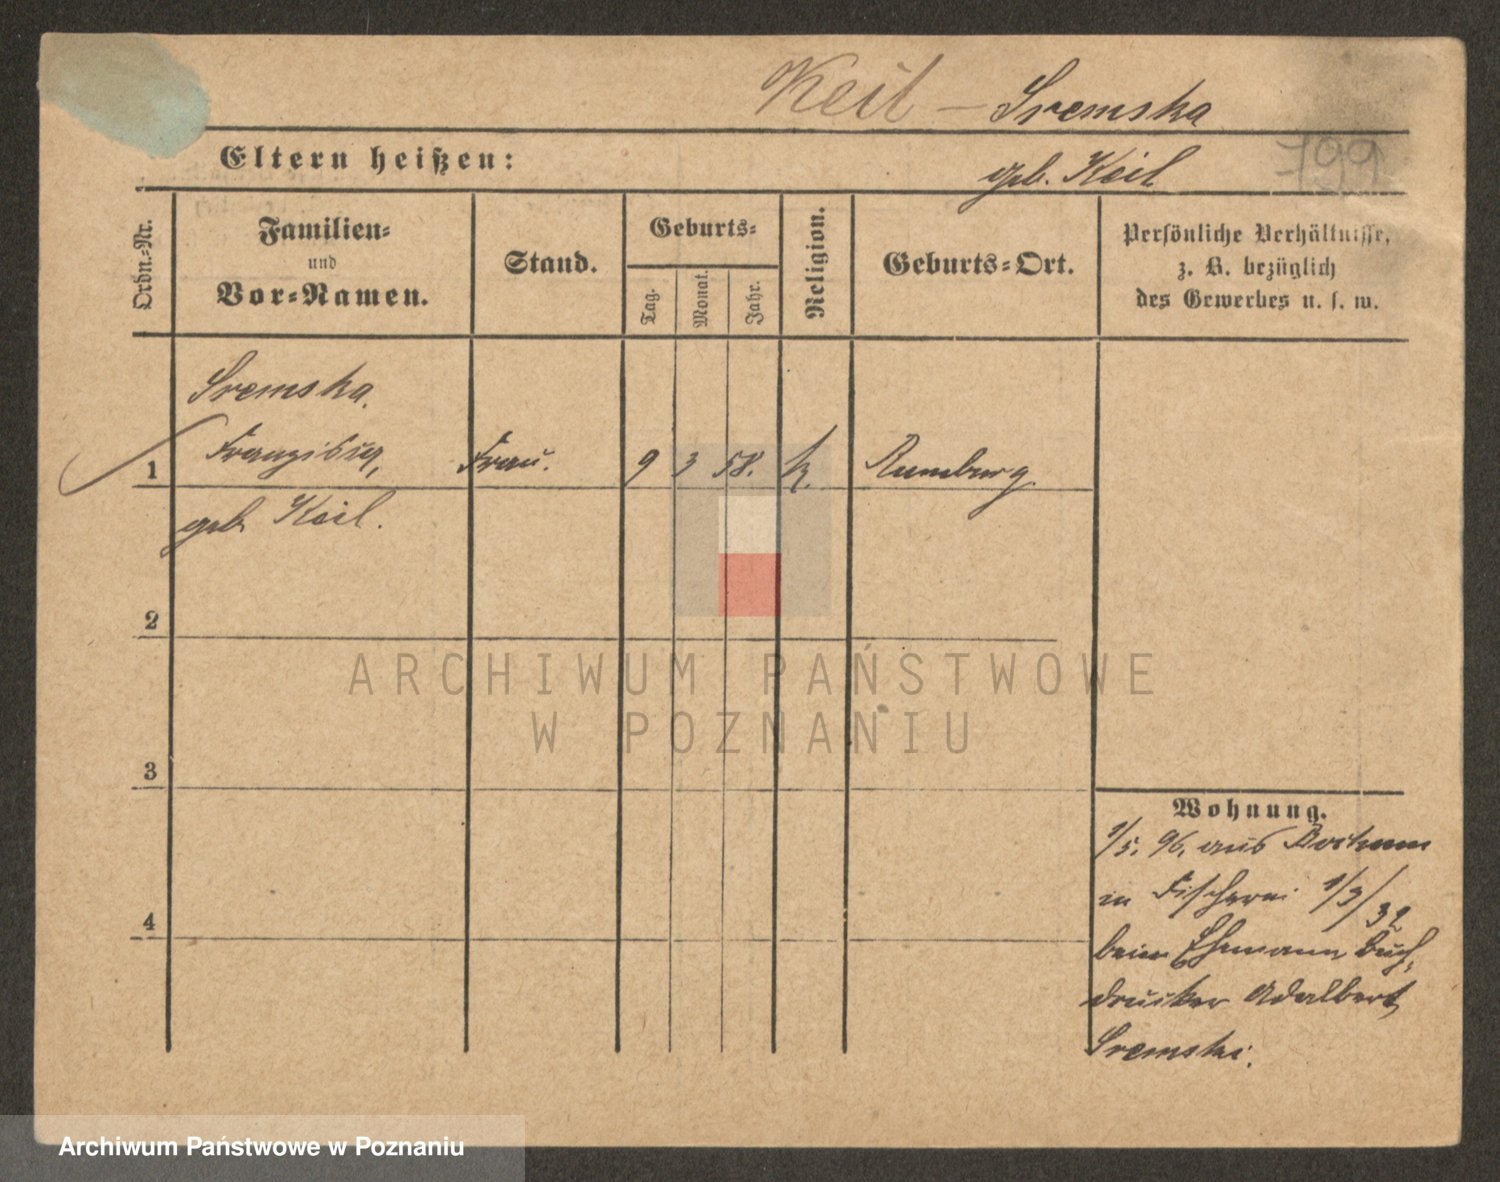 Keil – Sremska
Eltern heißen:
geb. Keil
799
Ordn.-Nr.
Familien-
und
Vor-Namen.
Stand.
Geburts-
Tag.
Monat.
Jahr.
Religion.
Geburts-Ort.
Persönliche Verhältnisse,
z. B. bezüglich
des Gewerbes u. s. w.
Sremska
1 Franziska, Frau. 9 3 58. k. Rumburg
geb. Keil.
2
ARCHIWUM PAŃSTWOWE
W POZNANIU
3
4
Wohnung.
1/5. 96. aus Bochum
in Fischerei 1/3/32
beim Ehemann Buch-
drucker Adalbert
Sremski.
Archiwum Państwowe w Poznaniu